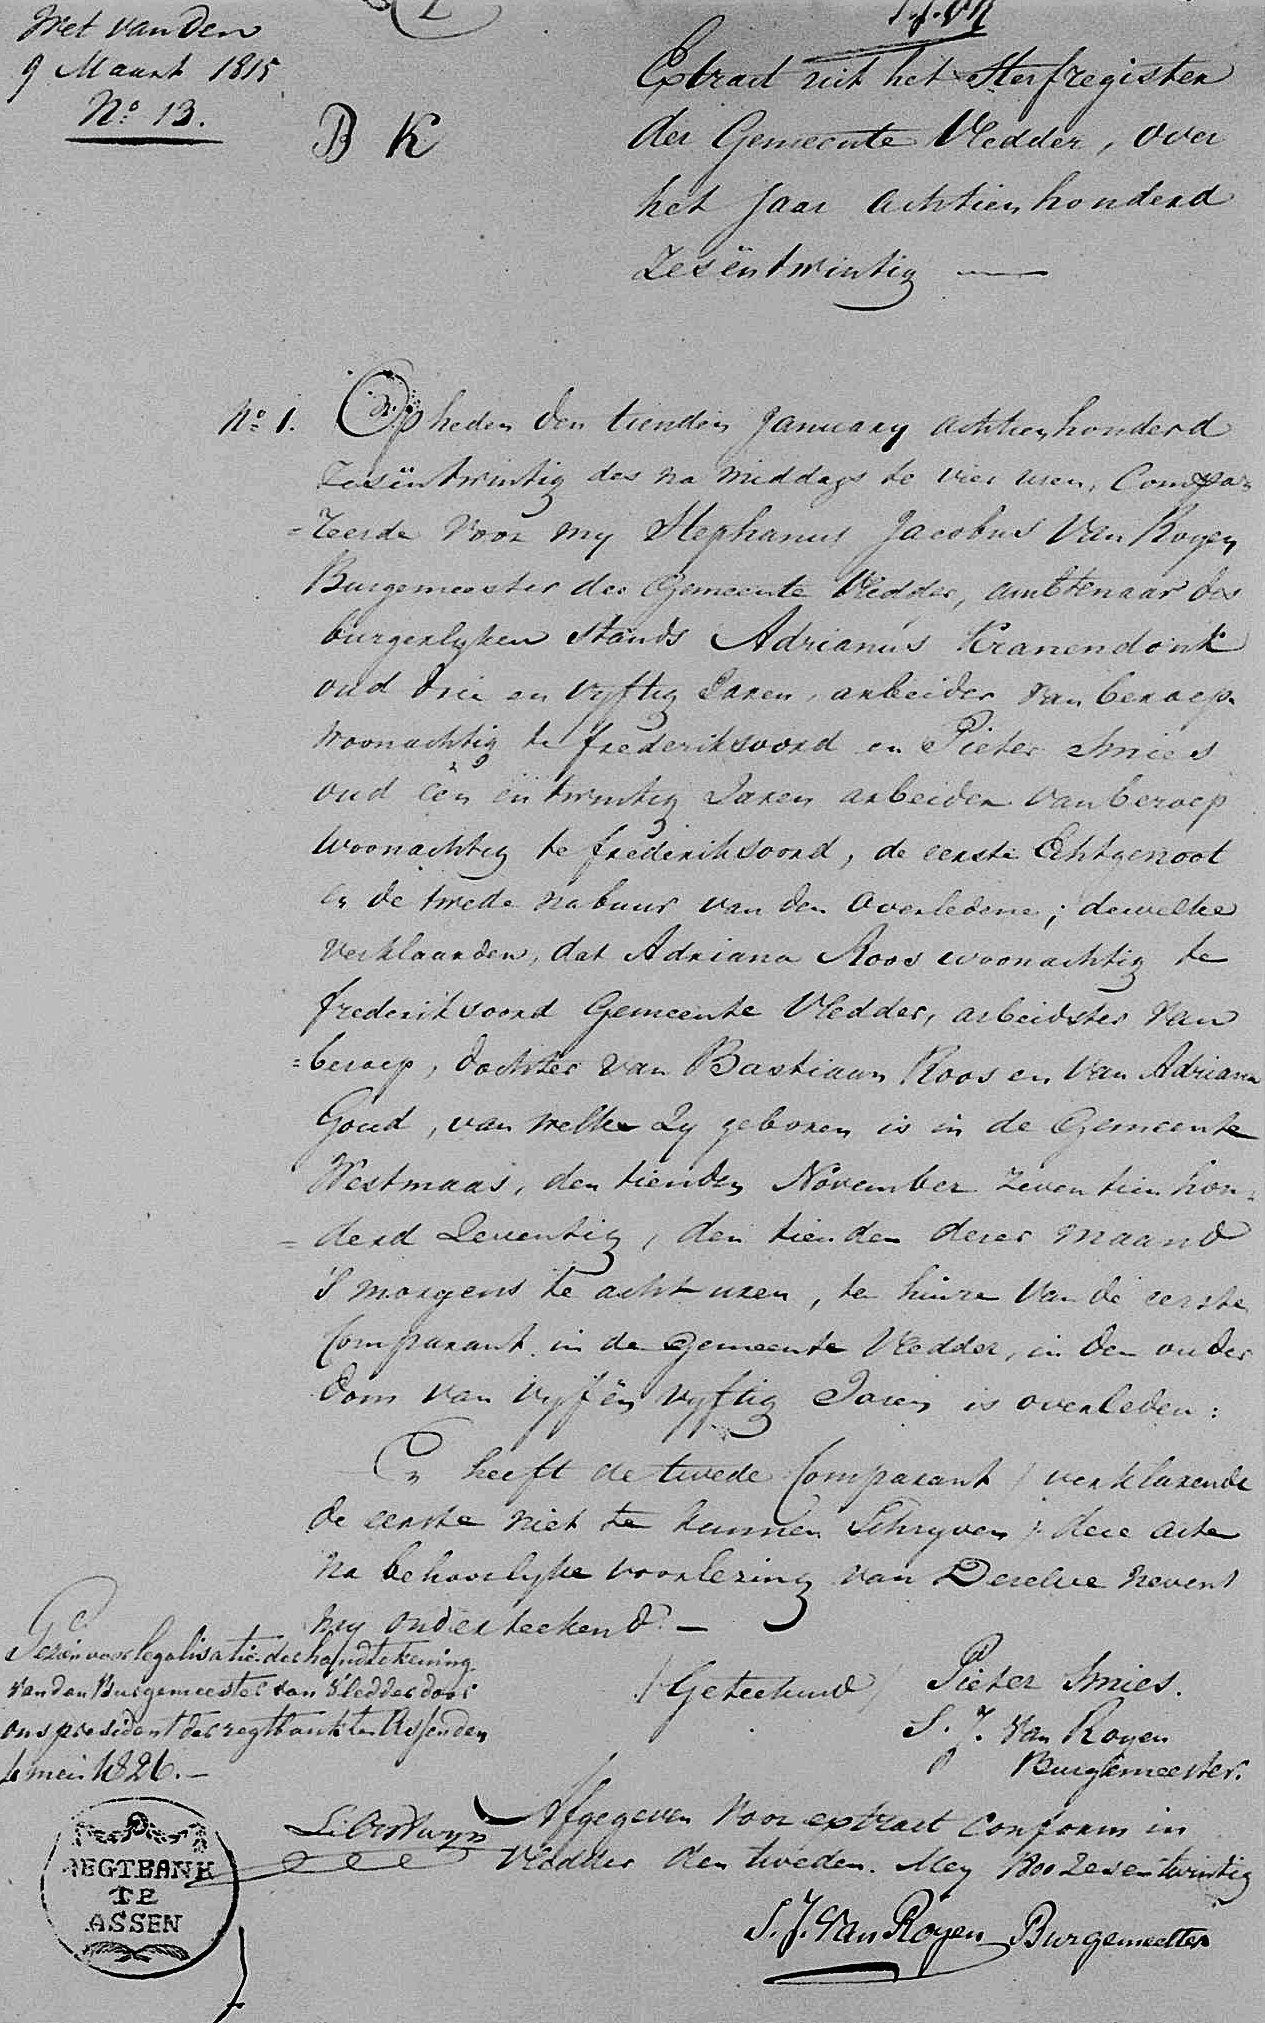 Wet van den
9 Maart 1815
No. 13.
B K
Extract uit het Sterfregister
der Gemeente Vledder, over
het Jaar achtienhonderd
Zesëntwintig —
No. 1. Op heden den tienden January achtienhonderd
Zesëntwintig des na middags te vier uren, Compa=
=reerde Voor my Stephanus Jacobus Van Royen
Burgemeester der Gemeente Vledder, ambtenaar des
burgerlyken Stands Adrianus Kranendonk
oud drie en vyftig Jaren, arbeider van beroep.
woonachtig te frederiksoord en Pieter Smies
oud één ëntwintig Jaren arbeider van beroep
woonachtig te frederiksoord, de eerste Echtgenoot
en de twede nabuur van den Overledene; dewelke
verklaarden, dat Adriana Roos woonachtig te
frederiksoord Gemeente Vledder, arbeidster van
=beroep, dochter van Bastiaan Roos en van Adriana
Goud, van welke Zy geboren is in de Gemeente
Westmaas, den tienden November Zeventienhon=
=derd Zeventig, den tienden dezer maand
's morgens te acht uren, ten huize van de eerste
Comparant in de Gemeente Vledder, in den ouder
dom van vyfën vyftig Jaren is overleden:
En heeft de twede Comparant / verklarende
de eerste niet te kunnen Schryven / deze acte
na behoorlyke voorlezing van Dezelve nevens
my onderteekend. —
/ Geteekend / Pieter Smies.
S. J. Van Royen
Burgemeester.
Gezien voor legalisatie der handtekening
van den Burgemeester van Vledder door
ons president der regtbank te Assen den
4 mei 1826. —
Afgegeven voor extract Conform in
Vledder den tweden Mey 1800 Zesentwintig
S. J. Van Royen Burgemeester
REGTBANK
TE
ASSEN